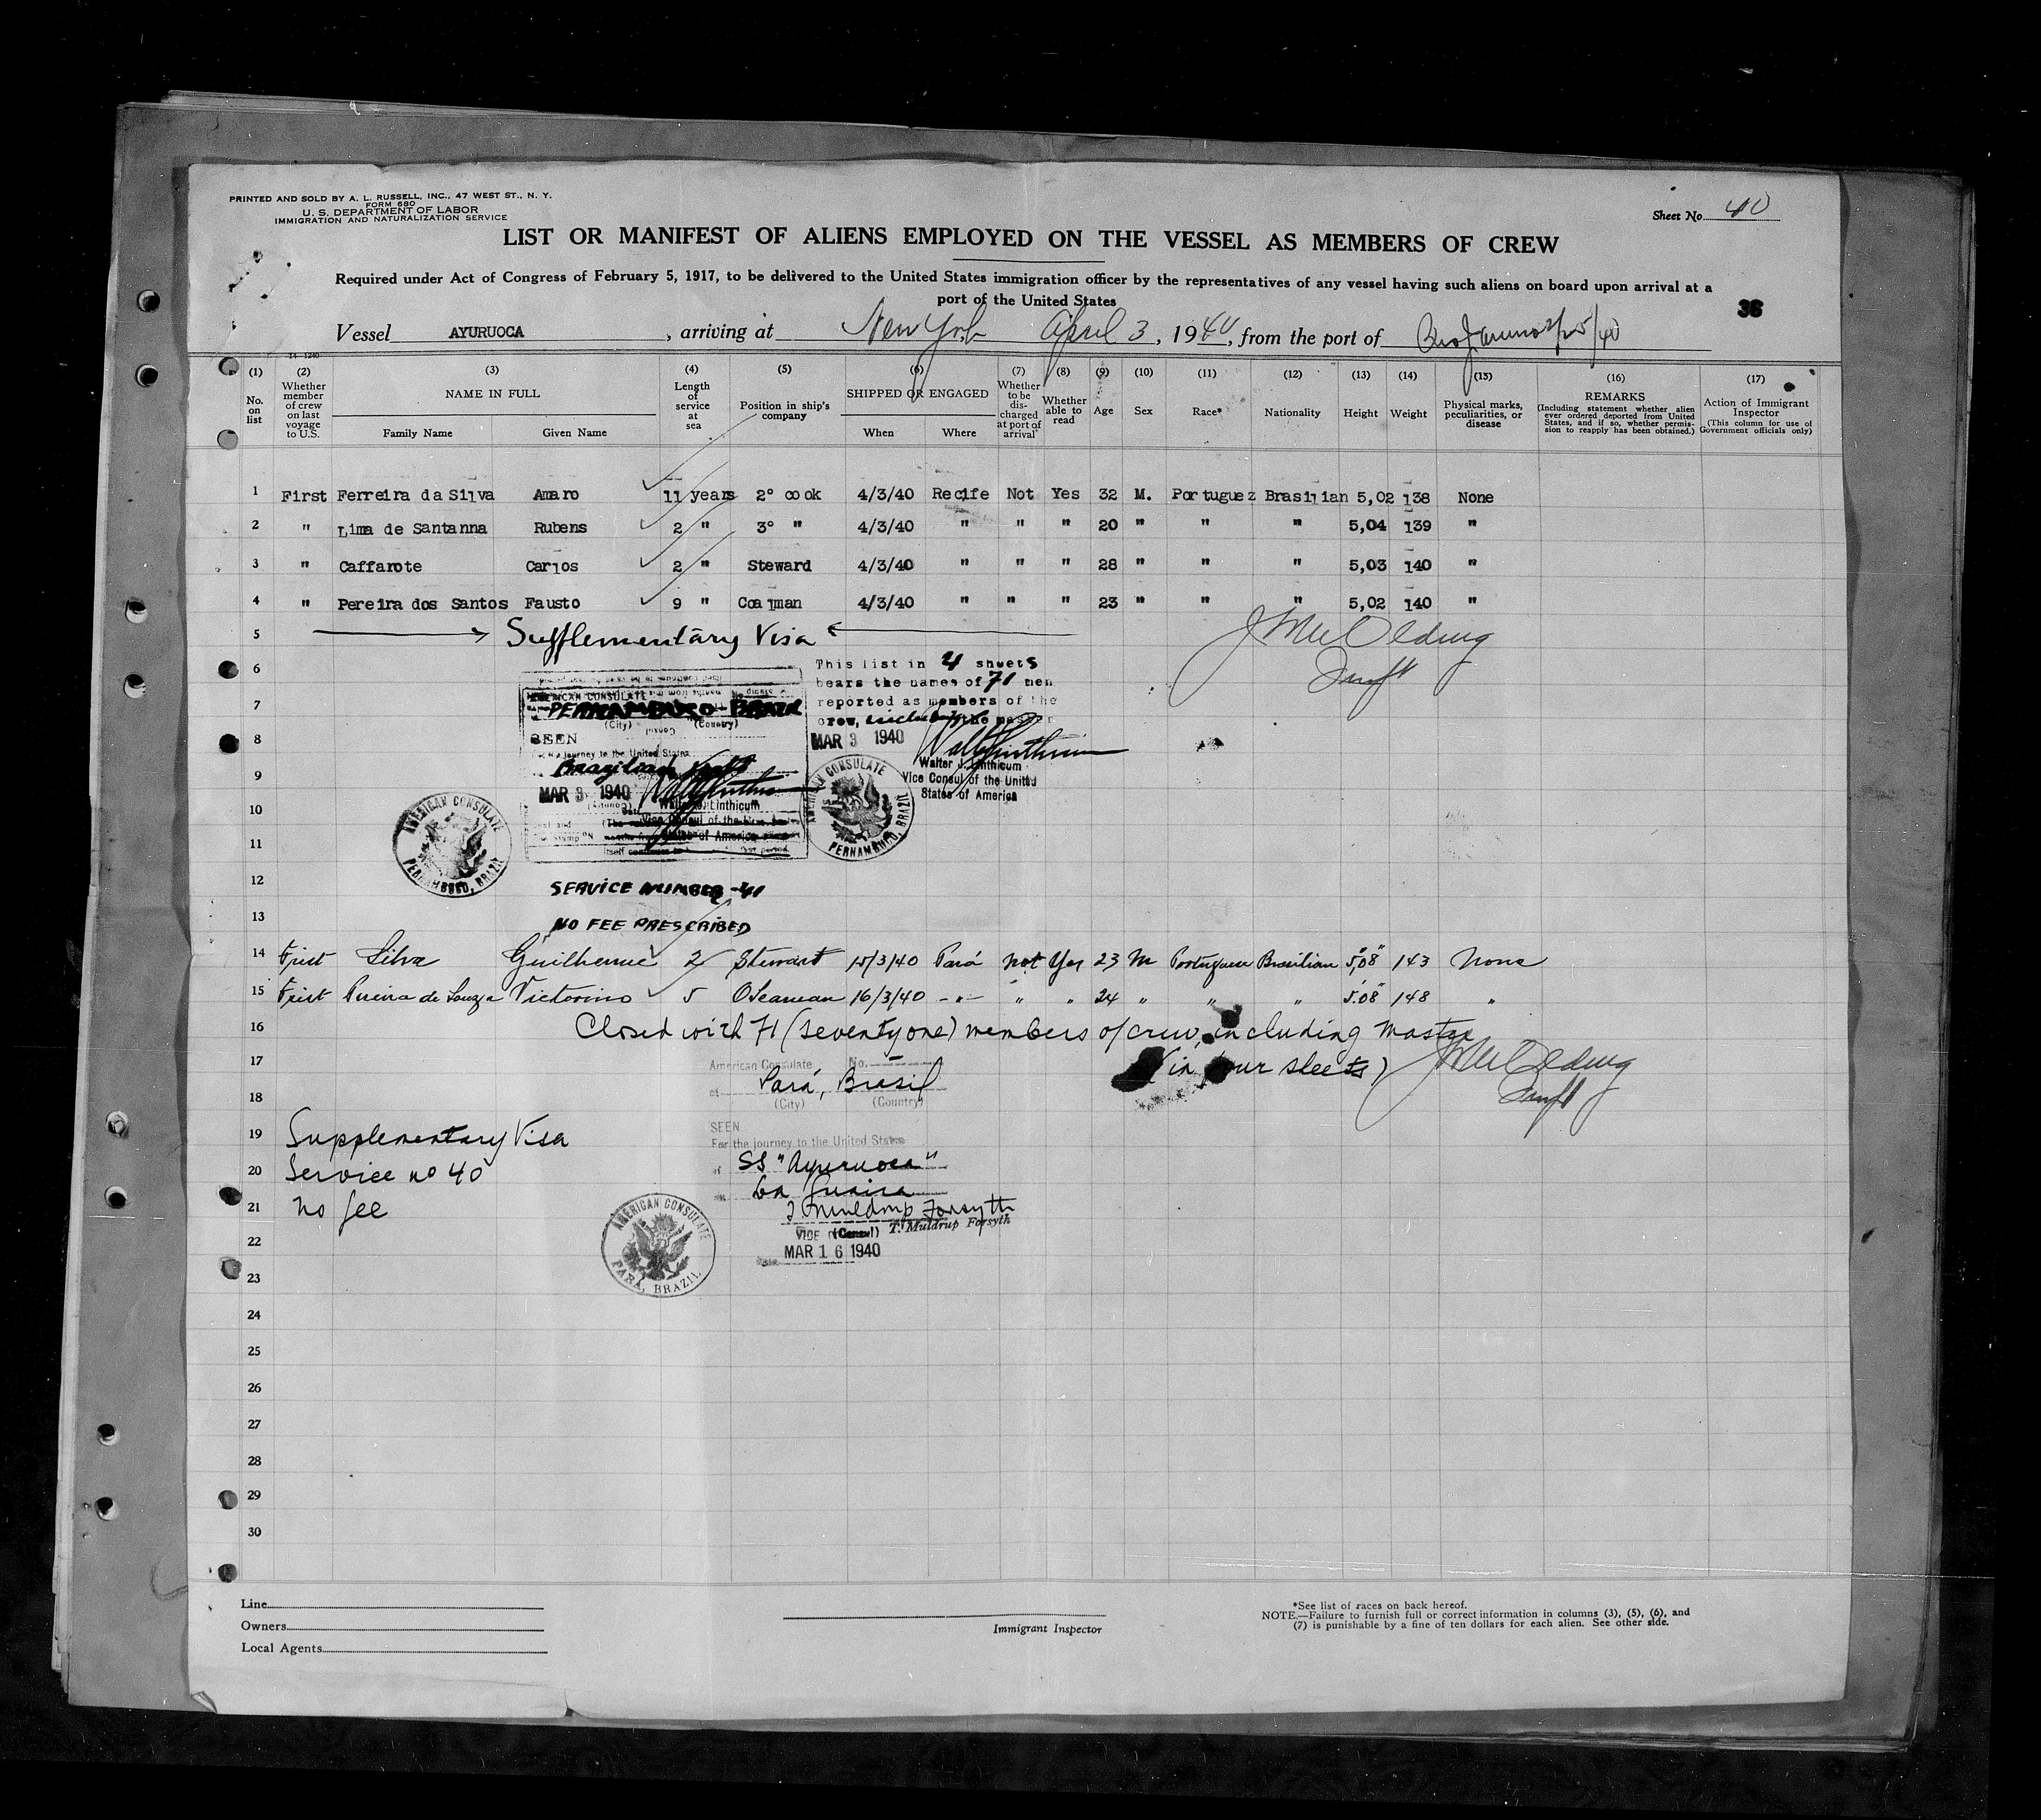 PRINTED AND SOLD BY A. L. RUSSELL, INC., 47 WEST ST., N. Y.
FORM 680
U. S. DEPARTMENT OF LABOR
IMMIGRATION AND NATURALIZATION SERVICE
Sheet No. 40
LIST OR MANIFEST OF ALIENS EMPLOYED ON THE VESSEL AS MEMBERS OF CREW
Required under Act of Congress of February 5, 1917, to be delivered to the United States immigration officer by the representatives of any vessel having such aliens on board upon arrival at a
port of the United States
36
Vessel AYURUOCA, arriving at New York April 3, 1940, from the port of
14-1240
(1) (2) (3) (4) (5) (6) (7) (8) (9) (10) (11) (12) (13) (14) (15) (16) (17)
No. on list
Whether member of crew on last voyage to U.S.
NAME IN FULL
Family Name Given Name
Length of service at sea
Position in ship's company
SHIPPED OR ENGAGED
When Where
Whether to be discharged at port of arrival
Whether able to read
Age
Sex
Race*
Nationality
Height
Weight
Physical marks, peculiarities, or disease
REMARKS
(Including statement whether alien ever ordered deported from United States, and if so, whether permission to reapply has been obtained.)
Action of Immigrant Inspector
(This column for use of Government officials only)
1 First Ferreira da Silva Amaro 11 years 2° cook 4/3/40 Recife Not Yes 32 M. Portuguez Brasilian 5,02 138 None
2 " Lima de Santanna Rubens 2 " 3° " 4/3/40 " " " 20 " " " 5,04 139 "
3 " Caffarote Carlos 2 " Steward 4/3/40 " " " 28 " " " 5,03 140 "
4 " Pereira dos Santos Fausto 9 " Coalman 4/3/40 " " " 23 " " " 5,02 140 "
5 Supplementary Visa
6
7
8
9
10
11
12
13
This list in 4 sheets
bears the names of 71 men
reported as members of the
crew, including the master
MAR 3 1940
Walter J. Linthicum
Vice Consul of the United
States of America
AMERICAN CONSULATE
PERNAMBUCO, BRAZIL
AMERICAN CONSULATE
PERNAMBUCO BRAZIL
(City) (Country)
SEEN
journey to the United States
MAR 3 1940
Walter J. Linthicum
Vice Consul of the
States of America
AMERICAN CONSULATE
PERNAMBUCO, BRAZIL
SERVICE NUMBER -41
NO FEE PRESCRIBED
14 First Silva Guilherme 2 Stewart 15/3/40 Pará Not Yes 23 M Portuguese Brasilian 5,08" 143 None
15 First Pereira de Souza Victorino 5 OSeaman 16/3/40 -"- " " 24 " " " 5.08" 148 "
16 Closed with 71 (seventy one) members of crew, including master
17 (in four sheets)
American Consulate No.
at Pará, Brasil
18 (City) (Country)
SEEN
19 Supplementary Visa
For the journey to the United States
of SS "Ayuruoca"
20 Service no 40
via La Guaira
21 No fee
T. Muldrup Forsyth
T. Muldrup Forsyth
VICE (Consul)
22
MAR 16 1940
AMERICAN CONSULATE
PARÁ, BRAZIL
23
24
25
26
27
28
29
30
Line
Owners
Local Agents
Immigrant Inspector
*See list of races on back hereof.
NOTE.—Failure to furnish full or correct information in columns (3), (5), (6), and
(7) is punishable by a fine of ten dollars for each alien. See other side.